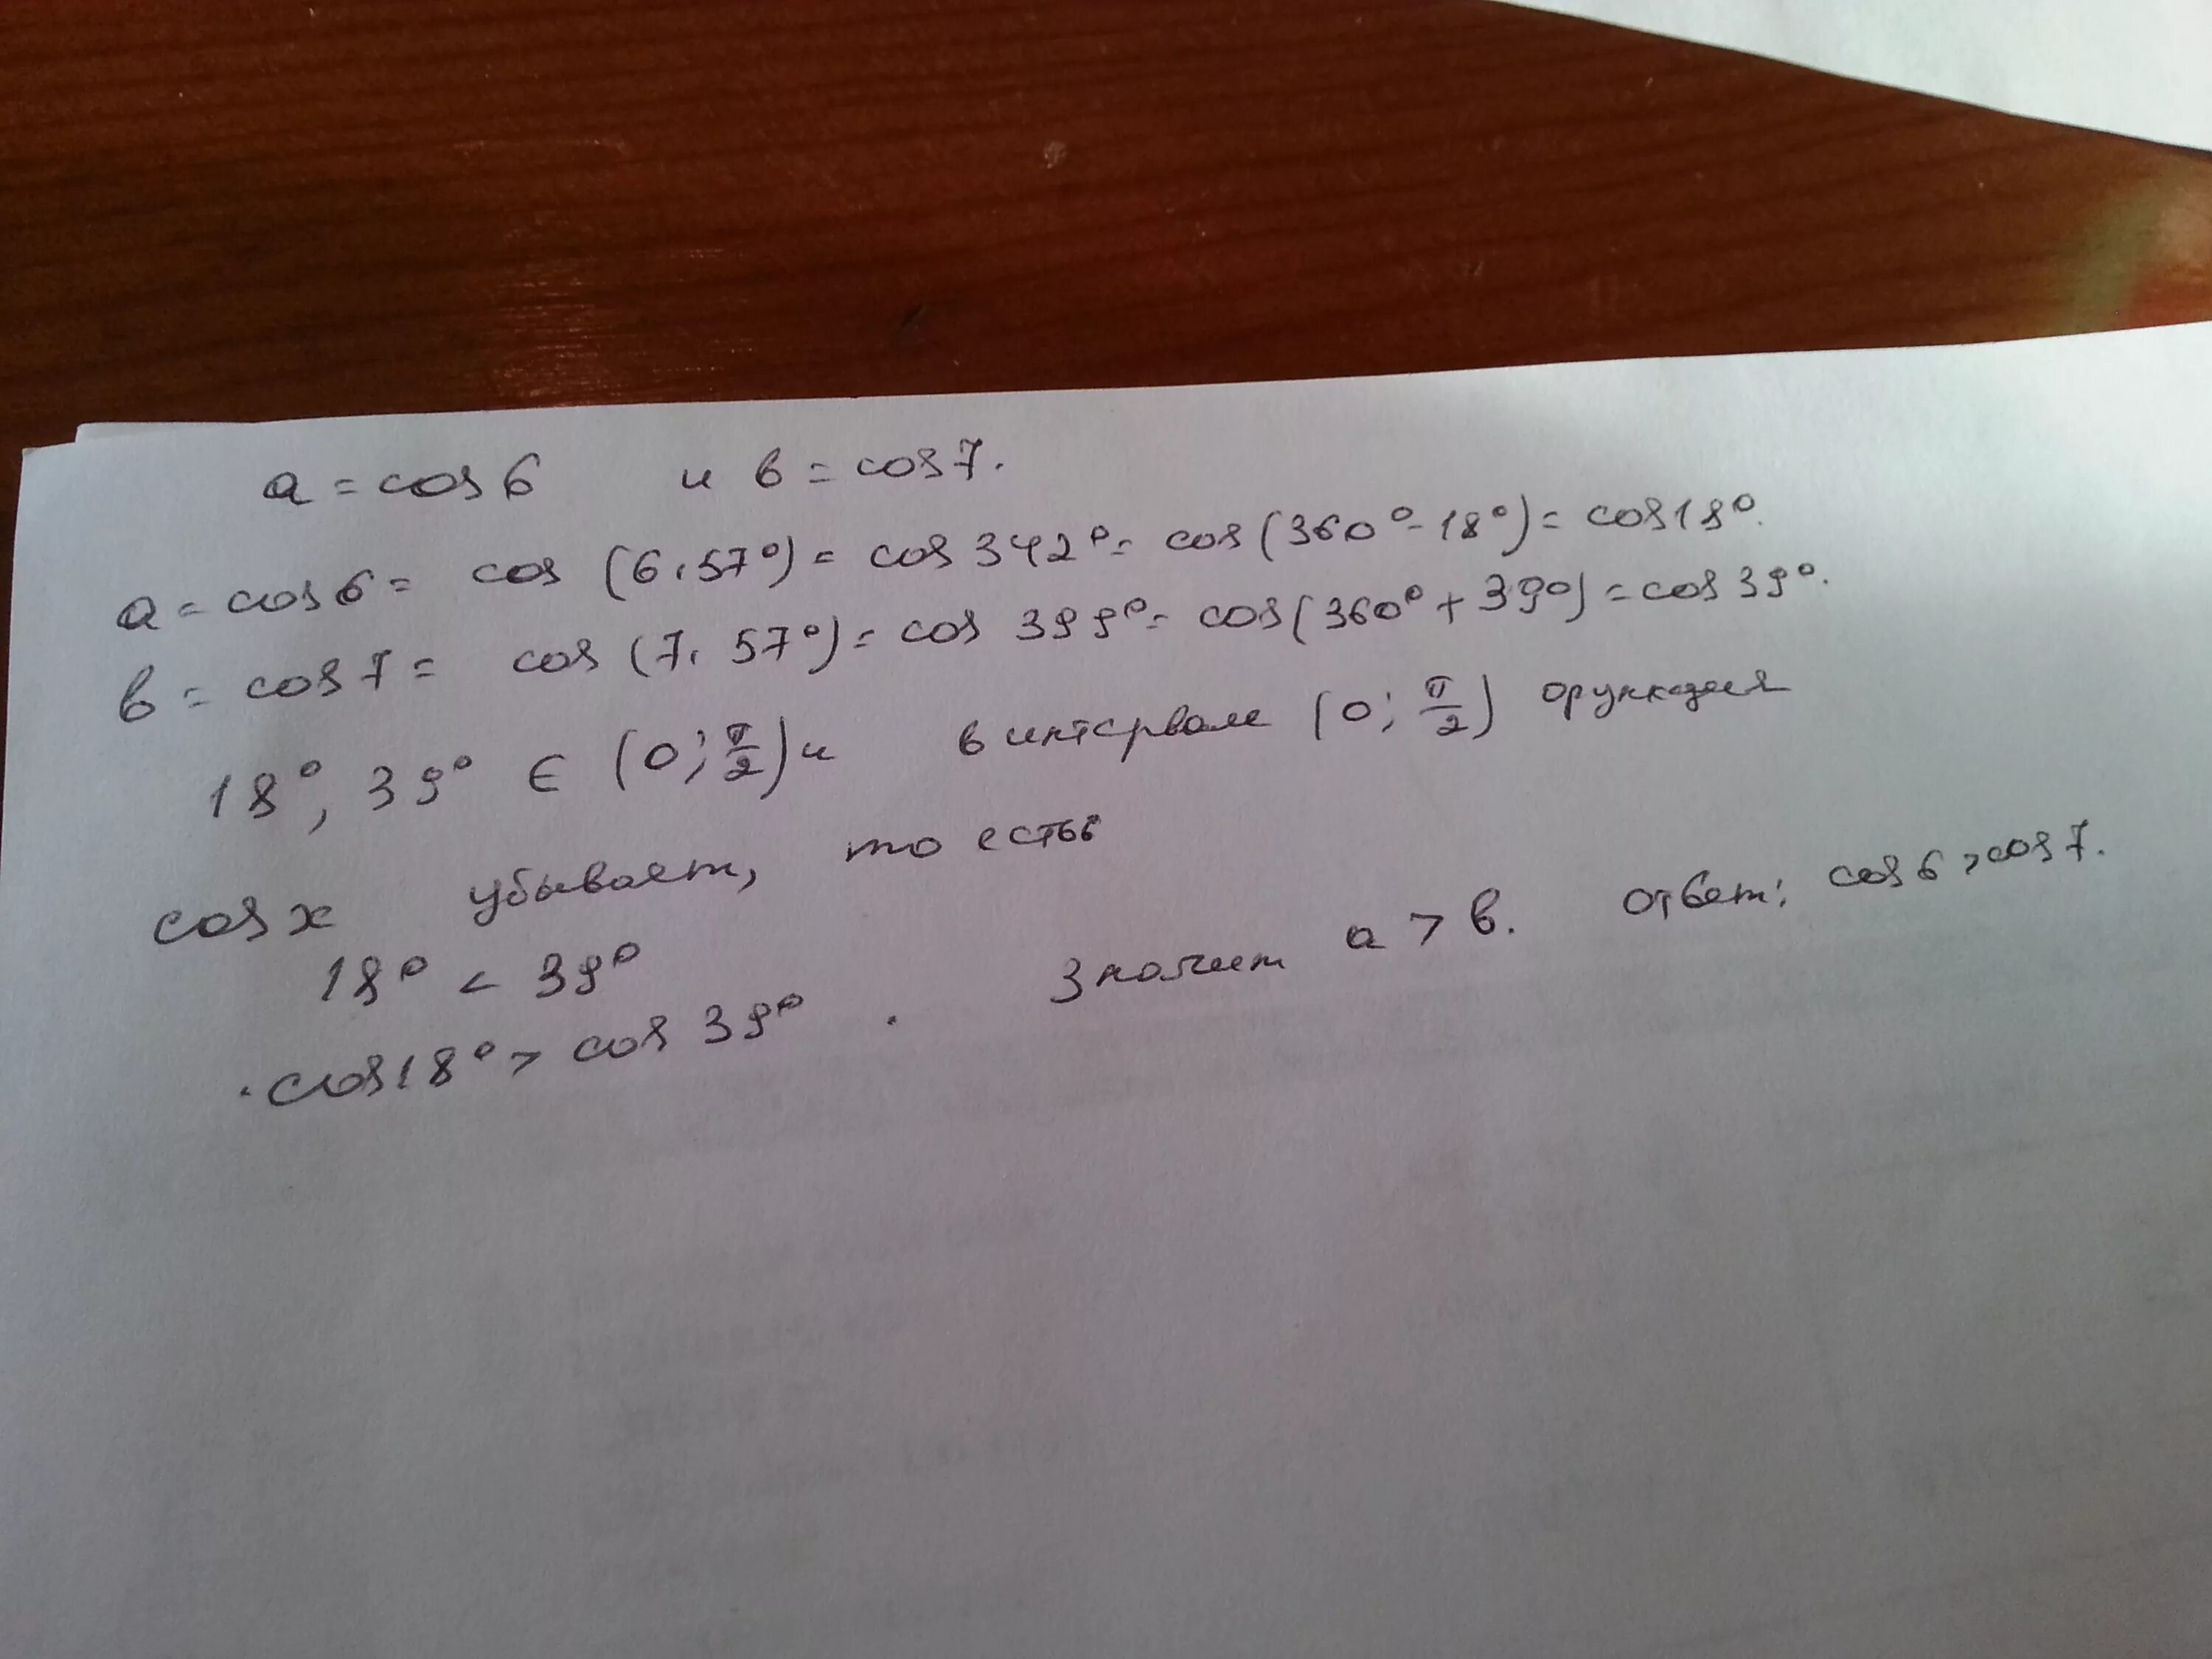 a = cos 6 и в = cos 7.
a = cos 6 = cos (6 · 57°) = cos 342° = cos (360° - 18°) = cos 18°.
в = cos 7 = cos (7 · 57°) = cos 399° = cos (360° + 39°) = cos 39°.
18°, 39° ∈ (0; π/2) и в интервале (0; π/2) функция
cos x убывает, то есть
18° < 39°
cos 18° > cos 39°. Значит a > в. Ответ: cos 6 > cos 7.